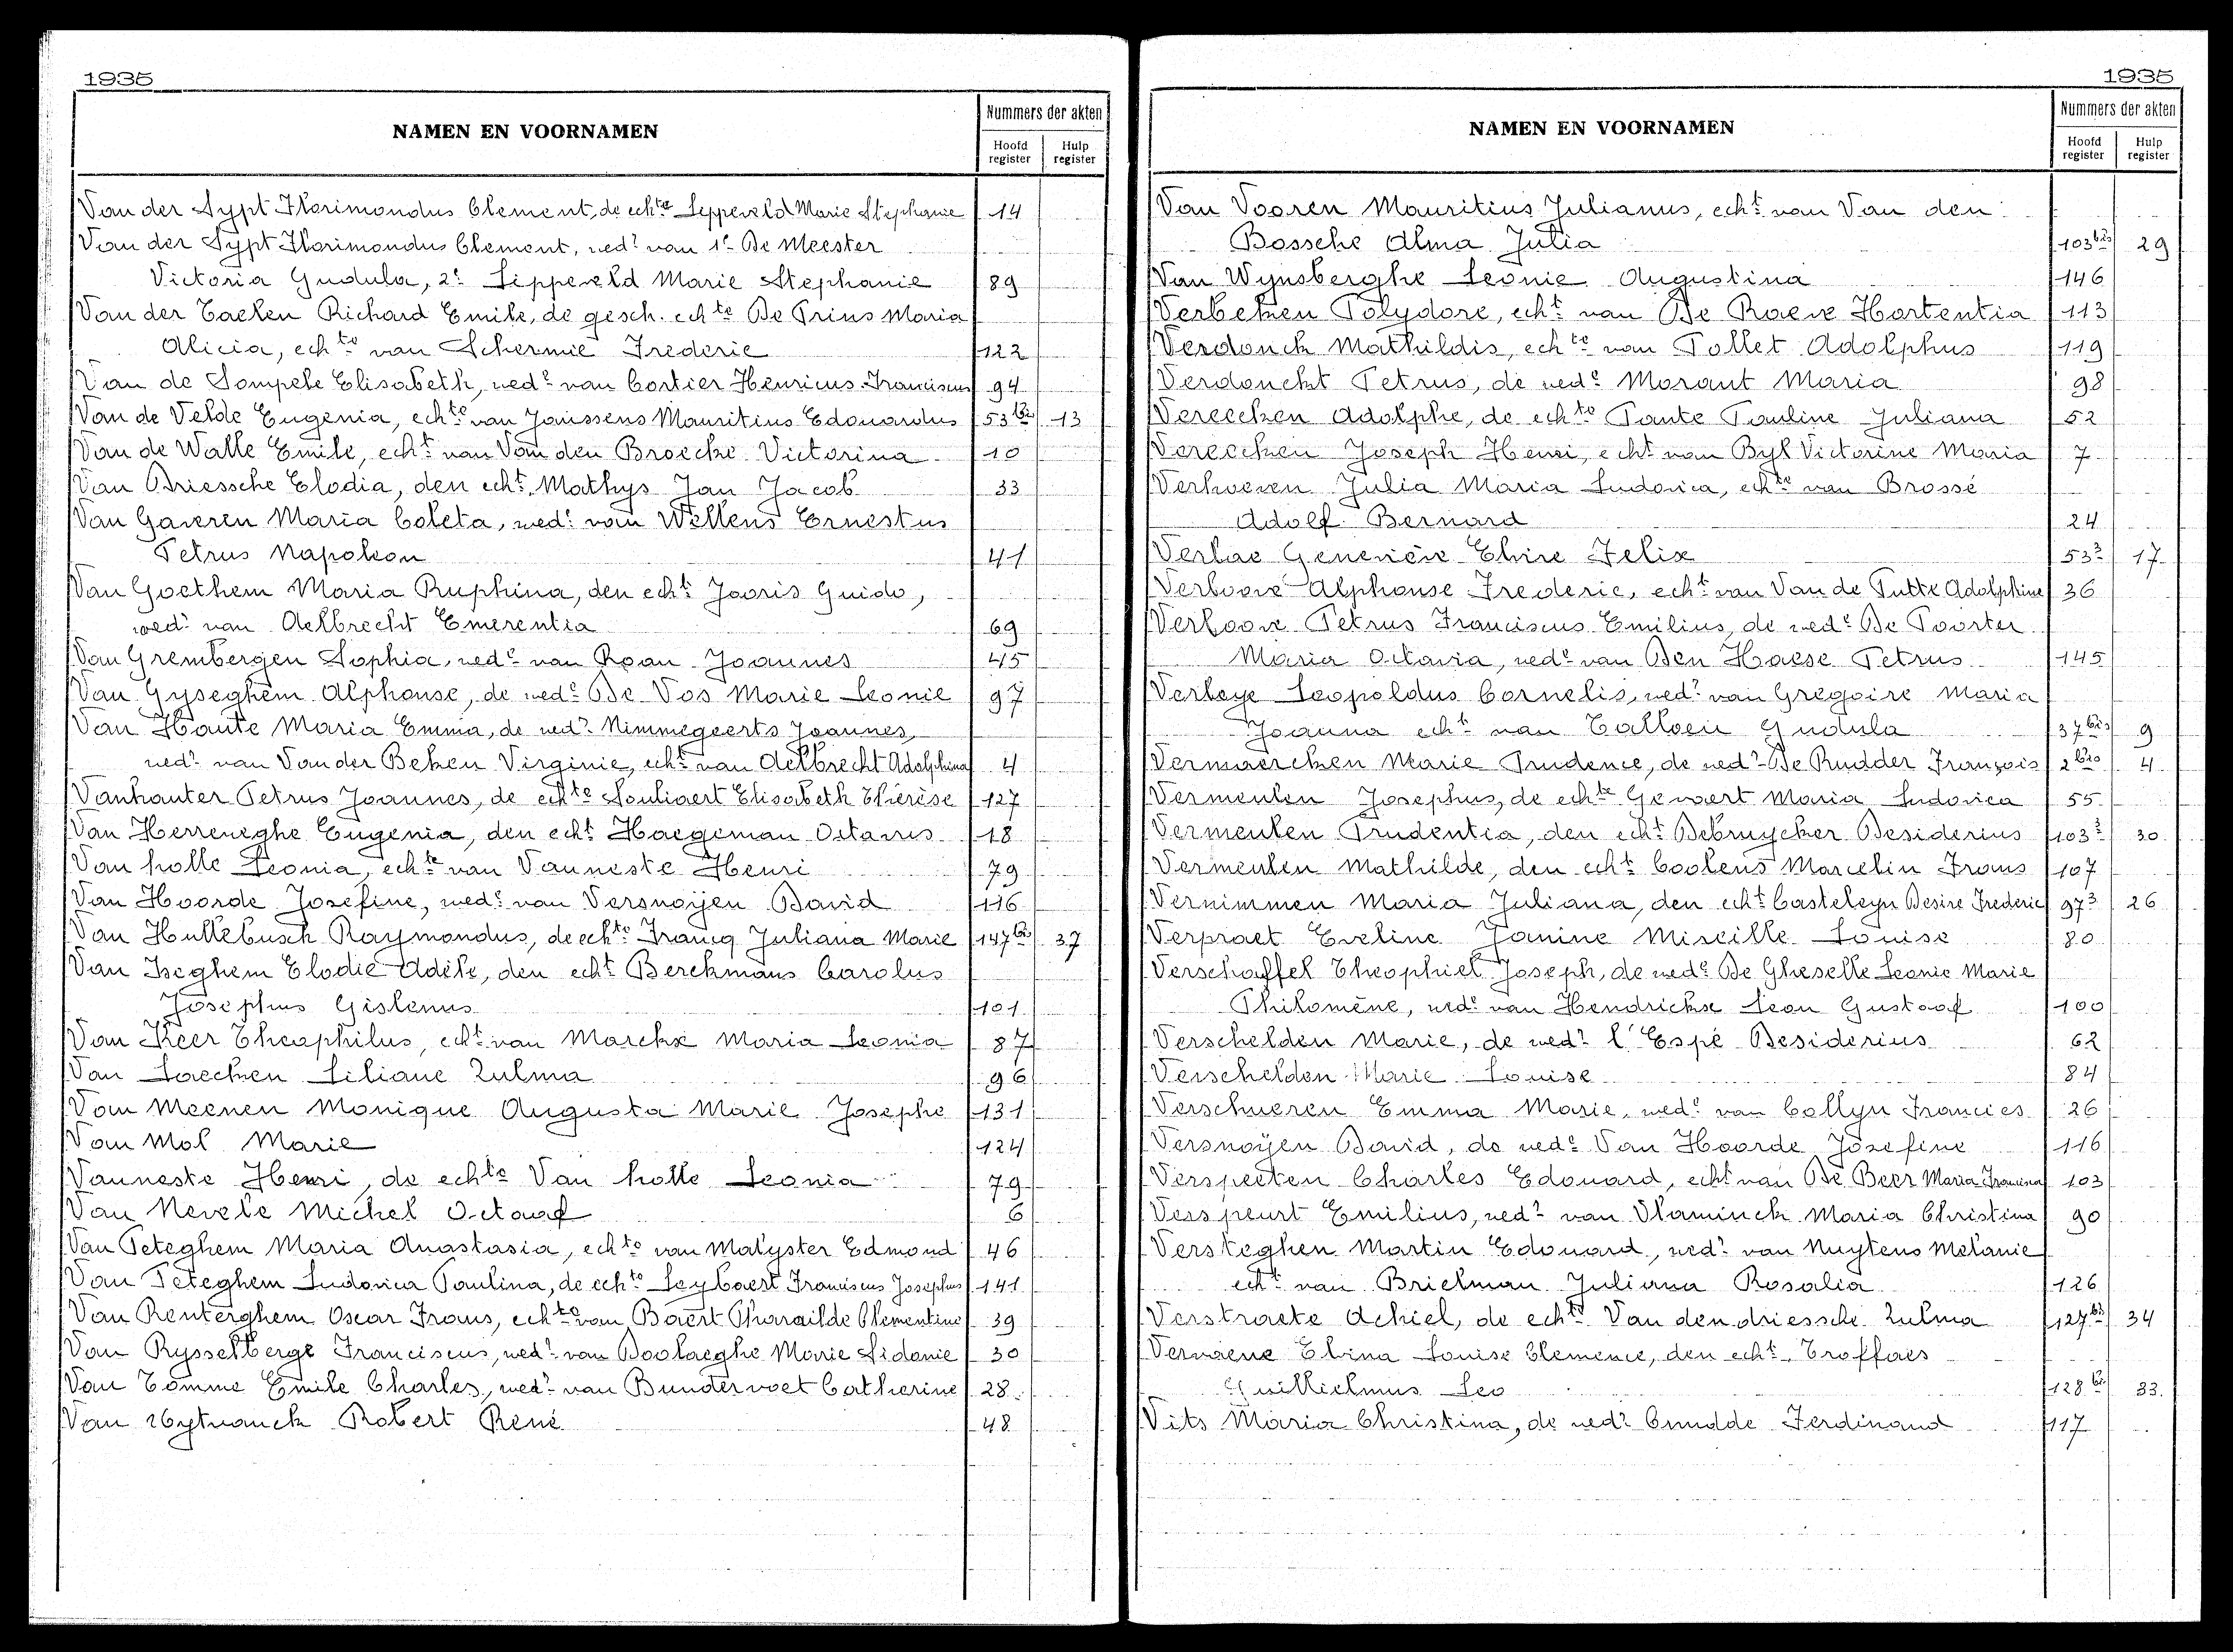 1935
NAMEN EN VOORNAMEN
Nummers der akten
Hoofd register
Hulp register
Van der Sypt Florimondus Clement, de echte Lippeveld Marie Stephanie 14
Van der Sypt Florimondus Clement, wedr van 1e De Meester
Victoria Gudula, 2e Lippeveld Marie Stephanie 89
Van der Taelen Richard Emile, de gesch. echte De Prins Maria
Alicia, echte van Schermie Frederic 122
Van de Sompele Elisabeth, wede van Cortier Henricus Franciscus 94
Van de Velde Eugenia, echte van Janssens Mauritius Edouardus 53bis 13
Van de Walle Emile, echt van Van den Broecke Victorina 10
Van Driessche Elodia, den echt Mathys Jan Jacob 33
Van Gaveren Maria Coleta, wede van Willens Ernestus
Petrus Napoleon 41
Van Goethem Maria Ruphina, den echt Jooris Guido,
wedr van Aelbrecht Emerentia 69
Van Grembergen Sophia, wede van Roan Joannes 45
Van Gyseghem Alphonse, de wede De Vos Marie Leonie 97
Van Haute Maria Emma, de wedr Nimmegeerts Joannes,
wedr van Van der Beken Virginie, echt van Aelbrecht Adolphina 4
Vanhauter Petrus Joannes, de echte Souliaert Elisabeth Thérèse 127
Van Herreweghe Eugenia, den echt Haegeman Octavus 18
Van holle Leonia, echte van Vanneste Henri 79
Van Hoorde Josefine, wede van Versnoÿen David 116
Van Hullebusch Raymondus, de echte Francq Juliana Marie 147bis 37
Van Iseghem Elodie Adèle, den echt Berckmans Carolus
Josephus Gislenus 101
Van Keer Theophilus, echt van Marckx Maria Leonia 87
Van Laecken Liliane Zulma 96
Van Meenen Monique Augusta Marie Josephe 131
Van Mol Marie 124
Vanneste Henri, de echte Van holle Leonia 79
Van Nevele Michel Octaaf 6
Van Peteghem Maria Anastasia, echte van Malyster Edmond 46
Van Peteghem Ludovica Paulina, de echte Leybaert Franciscus Josephus 141
Van Renterghem Oscar Frans, echte van Baert Pharailde Clementine 39
Van Rysselberge Franciscus, wedr van Boolaeghe Marie Sidonie 30
Van Tomme Emile Charles, wedr van Bundervoet Catherine 28
Van Uytvanck Robert René 48
1935
NAMEN EN VOORNAMEN
Nummers der akten
Hoofd register
Hulp register
Van Vooren Mauritius Julianus, echt van Van den
Bossche Alma Julia 103bis 29
Van Wynsberghe Leonie Augustina 146
Verbeken Polydore, echt van De Raeve Hortentia 113
Verdonck Mathildis, echte van Pollet Adolphus 119
Verdonckt Petrus, de wede Morant Maria 98
Vereecken Adolphe, de echte Pante Pauline Juliana 52
Vereecken Joseph Henri, echt van Byl Victorine Maria 7
Verhoeven Julia Maria Ludovica, echte van Brossé
Adolf Bernard 24
Verlae Geneviève Elvire Felix 53³ 17
Verloove Alphonse Frederic, echt van Van de Putte Adolphine 36
Verloove Petrus Franciscus Emilius, de wede De Poorter
Maria Octavia, wede van Den Haese Petrus 145
Verleye Leopoldus Cornelis, wedr van Gregoire Maria
Joanna echt van Talloen Gudula 37bis 9
Vermaercken Marie Prudence, de wedr De Rudder François 2bis 4
Vermeulen Josephus, de echte Gevaert Maria Ludovica 55
Vermeulen Prudentia, den echt Debruycker Desiderius 103³ 30
Vermeulen Mathilde, den echt Coolens Marcelin Frans 107
Vernimmen Maria Juliana, den echt Casteleyn Desire Frederic 97³ 26
Verpraet Eveline Janine Mireille Louise 80
Verschaffel Theophiel Joseph, de wede De Gheselle Leonie Marie
Philomène, wede van Hendrickx Leon Gustaaf 100
Verschelden Marie, de wedr l'Espé Desiderius 62
Verschelden Marie Louise 84
Verschueren Emma Marie, wede van Collyn Francies 26
Versnoÿen David, de wede Van Hoorde Josefine 116
Verspeeten Charles Edouard, echt van De Beer Maria Francisca 103
Verspeurt Emilius, wedr van Vlaminck Maria Christina 90
Versteghen Martin Edouard, wedr van Nuytens Melanie
echt van Brielman Juliana Rosalia 126
Verstraete Achiel, de echte Van den driessche Zulma 127bis 34
Vervaene Elvina Louise Clemence, den echt Troffaes
Guillielmus Leo 128bis 33
Vits Maria Christina, de wedr Cnudde Ferdinand 117